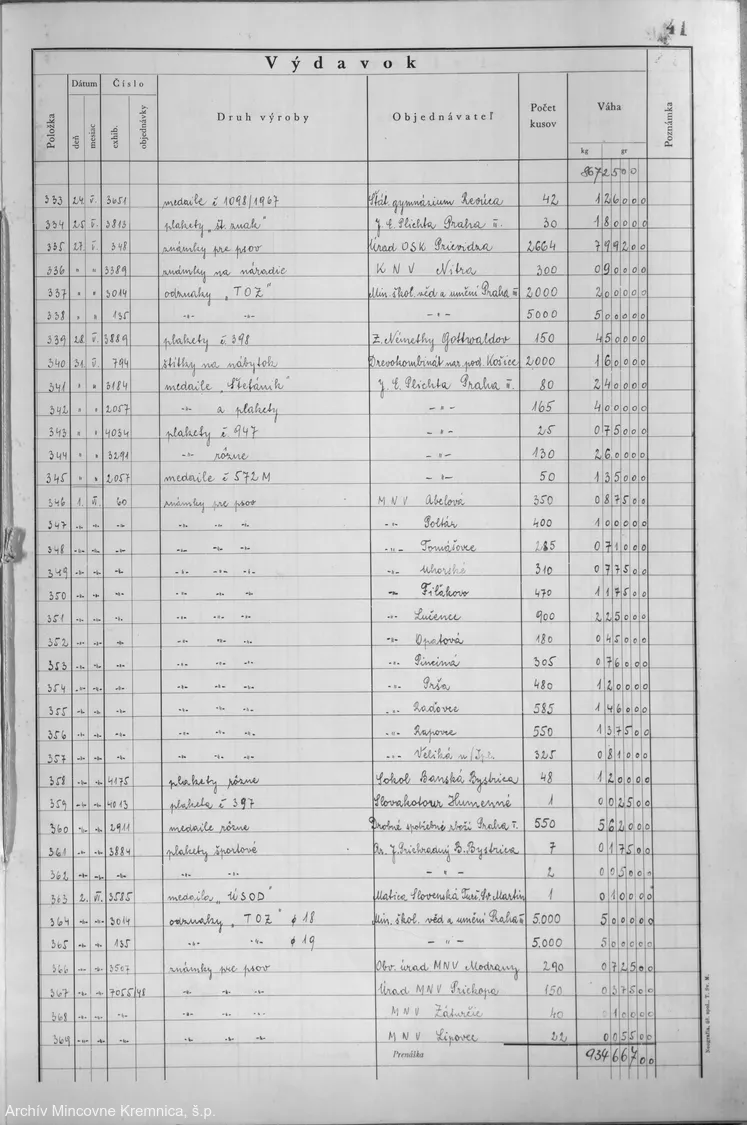 41
Výdavok
Položka Dátum Číslo Druh výroby Objednávateľ Počet kusov Váha Poznámka
deň mesiac exhib. objednávky kg gr
8672500
333 24. V. 3651 medaile č 1098/1967 Štát. gymnázium Revúca 42 126000
334 25 V. 3813 plakety „št. znak" J. E. Plichta Praha II. 30 180000
335 27. V. 348 známky pre psov Úrad OSK Prievidza 2664 799200
336 " " 3389 známky na náradie KNV Nitra 300 090000
337 " " 3014 odznaky „TOZ" Min. škol. věd a umění Praha III 2000 200000
338 " " 135 -"- -"- -"- 5000 500000
339 28. V. 3889 plakety č 398 Z. Némethy Gottwaldov 150 450000
340 31. V. 794 štítky na nábytok Drevokombinát nar. pod. Košice 2000 160000
341 " " 3184 medaile „Štefánik" J. E. Plichta Praha II. 80 240000
342 " " 2057 -"- a plakety -"- 165 400000
343 " " 4034 plakety č 947 -"- 25 075000
344 " " 3291 -"- rôzne -"- 130 260000
345 " " 2057 medaile č 572 M -"- 50 135000
346 1. VI. 60 známky pre psov MNV Abelová 350 087500
347 -"- -"- -"- -"- -"- -"- -"- Poltár 400 100000
348 -"- -"- -"- -"- -"- -"- -"- Tomášovce 285 071000
349 -"- -"- -"- -"- -"- -"- -"- Uhorské 310 077500
350 -"- -"- -"- -"- -"- -"- -"- Fiľakovo 470 117500
351 -"- -"- -"- -"- -"- -"- -"- Lučenec 900 225000
352 -"- -"- -"- -"- -"- -"- -"- Opatová 180 045000
353 -"- -"- -"- -"- -"- -"- -"- Pinciná 305 076000
354 -"- -"- -"- -"- -"- -"- -"- Prša 480 120000
355 -"- -"- -"- -"- -"- -"- -"- Raďovce 585 146000
356 -"- -"- -"- -"- -"- -"- -"- Rapovce 550 137500
357 -"- -"- -"- -"- -"- -"- -"- Veliká n/Ipl. 325 081000
358 -"- -"- 4175 plakety rôzne Sokol Banská Bystrica 48 120000
359 -"- -"- 4013 plaketa č 397 Slovakotour Humenné 1 002500
360 -"- -"- 2911 medaile rôzne Drobné spotřebné zboží Praha I. 550 562000
361 -"- -"- 3884 plakety športové Dr. J. Prichradný B. Bystrica 7 017500
362 -"- -"- -"- -"- -"- -"- 2 005000
363 2. VI. 3585 medaila „ÚSOD" Matica Slovenská Turč. Sv. Martin 1 010000
364 -"- -"- 3014 odznaky „TOZ" ø 18 Min. škol. věd a umění Praha III 5.000 500000
365 -"- -"- 135 -"- -"- ø 19 -"- 5.000 500000
366 -"- -"- 3507 známky pre psov Obv. úrad MNV Modrany 290 072500
367 -"- -"- 7055/48 -"- -"- Úrad MNV Príchopa 150 037500
368 -"- -"- -"- -"- -"- MNV Záturčie 40 010000
369 -"- -"- -"- -"- -"- MNV Lipovec 22 005500
Prenáška 9346670 0
Neografia, úč. spol., T. Sv. M.
Archív Mincovne Kremnica, š.p.